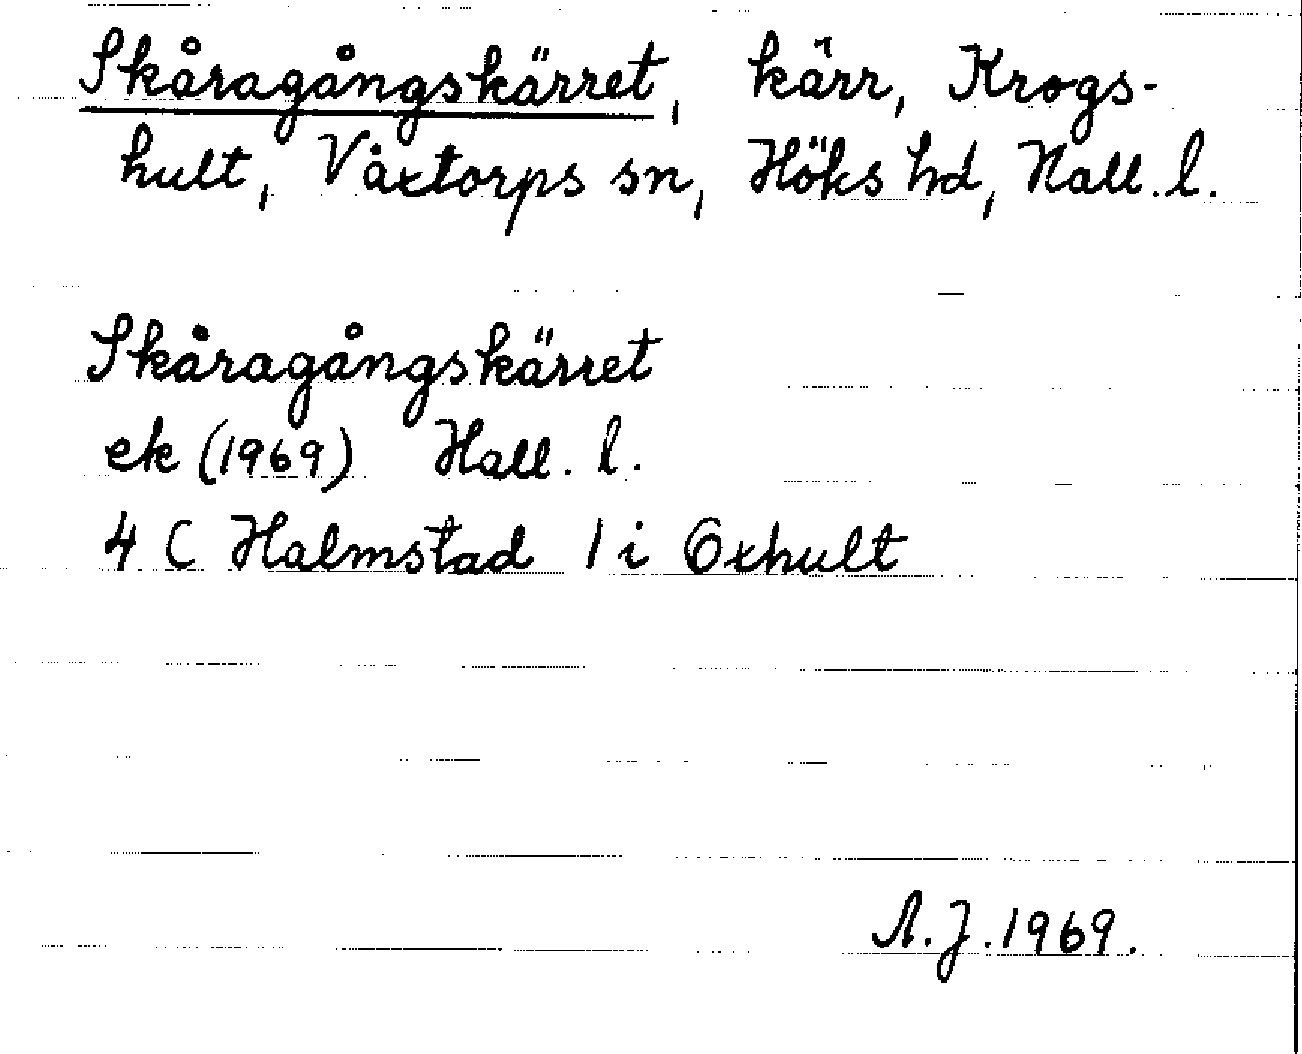 Skåragångskärret, kärr, Krogs-
hult, Våxtorps sn, Höks hd, Hall. l.
Skåragångskärret
ek (1969) Hall. l.
4 C Halmstad 1 i Oxhult
A. J. 1969.